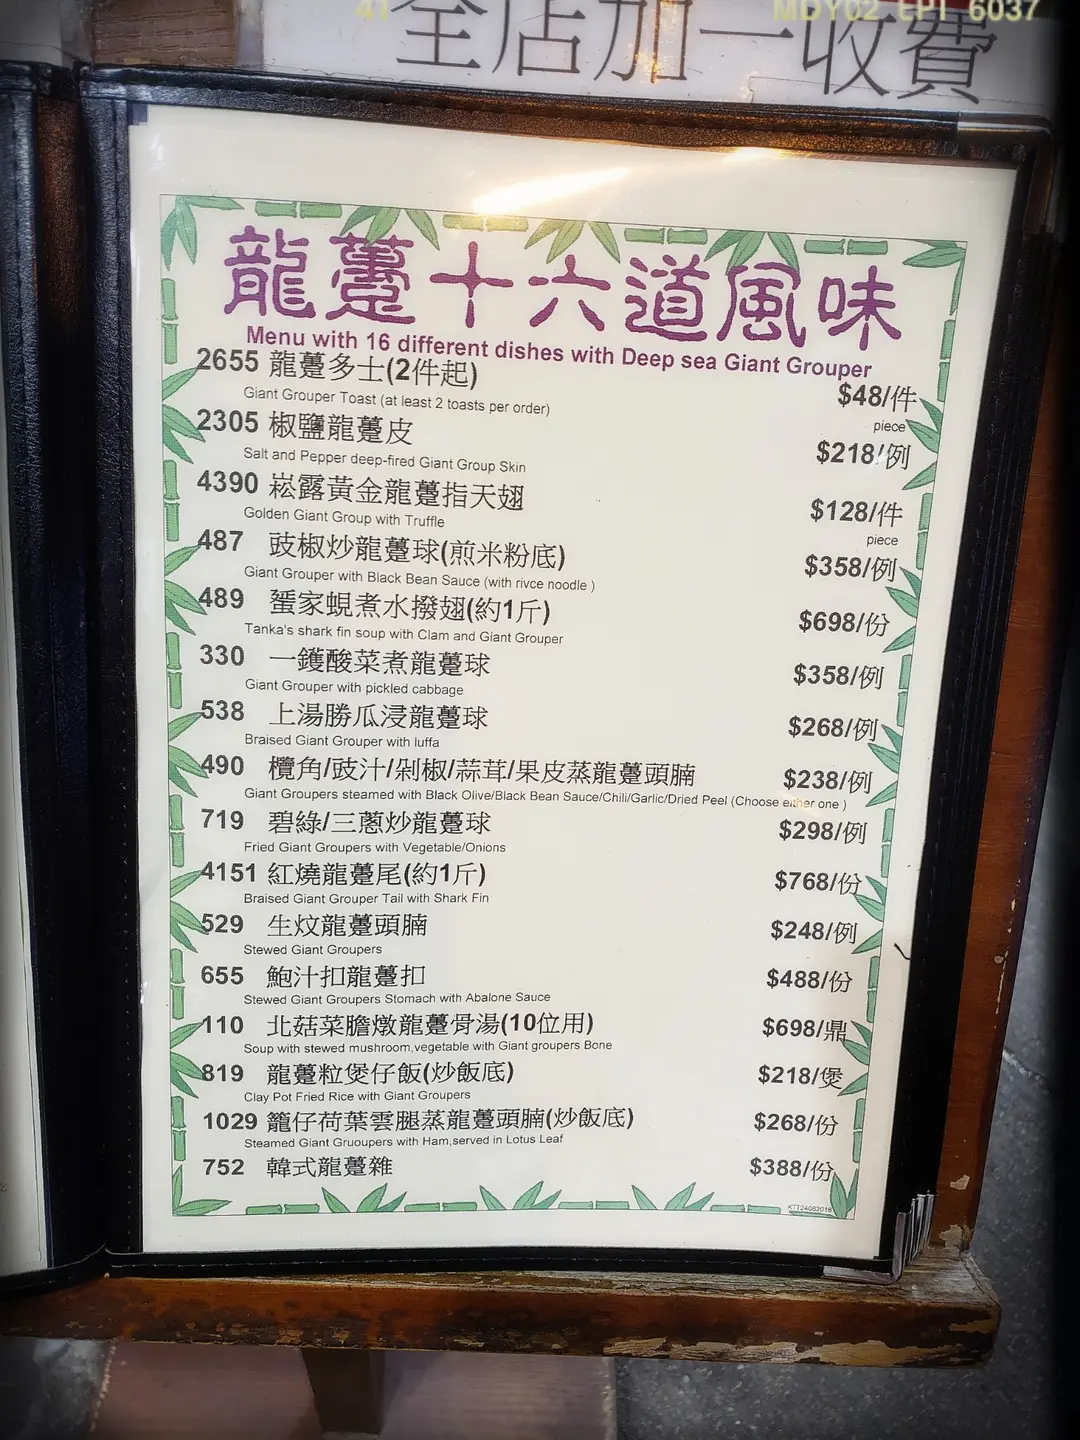 41 MDY02 EPI 6037
全店加一收費
龍躉十六道風味
Menu with 16 different dishes with Deep sea Giant Grouper
2655 龍躉多士(2件起) $48/件
Giant Grouper Toast (at least 2 toasts per order) piece
2305 椒鹽龍躉皮 $218/例
Salt and Pepper deep-fired Giant Group Skin
4390 崧露黃金龍躉指天翅 $128/件
Golden Giant Group with Truffle piece
487 豉椒炒龍躉球(煎米粉底) $358/例
Giant Grouper with Black Bean Sauce (with rivce noodle )
489 蜑家蜆煮水撥翅(約1斤) $698/份
Tanka's shark fin soup with Clam and Giant Grouper
330 一鑊酸菜煮龍躉球 $358/例
Giant Grouper with pickled cabbage
538 上湯勝瓜浸龍躉球 $268/例
Braised Giant Grouper with luffa
490 欖角/豉汁/剁椒/蒜茸/果皮蒸龍躉頭腩 $238/例
Giant Groupers steamed with Black Olive/Black Bean Sauce/Chili/Garlic/Dried Peel (Choose either one )
719 碧綠/三蔥炒龍躉球 $298/例
Fried Giant Groupers with Vegetable/Onions
4151 紅燒龍躉尾(約1斤) $768/份
Braised Giant Grouper Tail with Shark Fin
529 生炆龍躉頭腩 $248/例
Stewed Giant Groupers
655 鮑汁扣龍躉扣 $488/份
Stewed Giant Groupers Stomach with Abalone Sauce
110 北菇菜膽燉龍躉骨湯(10位用) $698/鼎
Soup with stewed mushroom,vegetable with Giant groupers Bone
819 龍躉粒煲仔飯(炒飯底) $218/煲
Clay Pot Fried Rice with Giant Groupers
1029 籠仔荷葉雲腿蒸龍躉頭腩(炒飯底) $268/份
Steamed Giant Gruoupers with Ham,served in Lotus Leaf
752 韓式龍躉雜 $388/份
KTT24082018